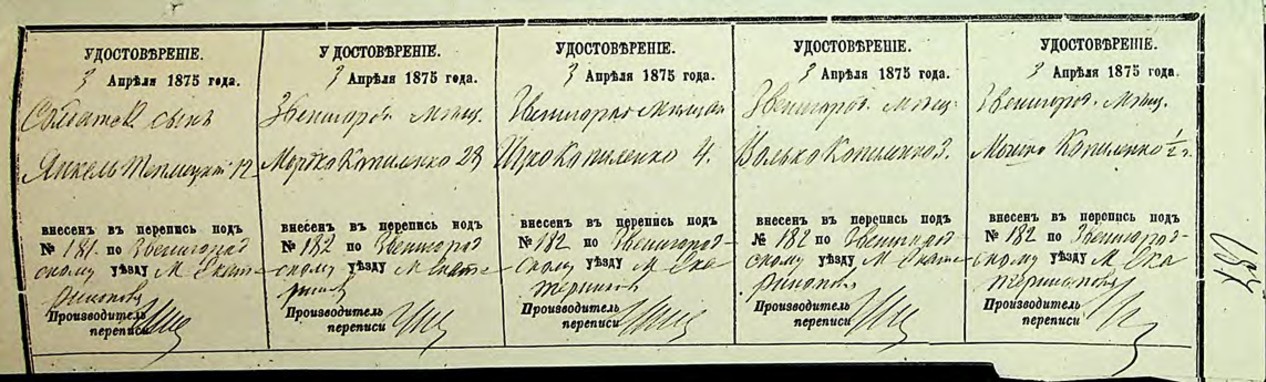 УДОСТОВѢРЕНІЕ.
3 Апрѣля 1875 года.
Солдатск. сынъ
Янкель Теплицкій 12
внесенъ въ перепись подъ
№ 181 по Звенигород
скому уѣзду М. Екате
ринополь
Производитель
переписи
УДОСТОВѢРЕНІЕ.
3 Апрѣля 1875 года.
Звенигород. мѣщ.
Мортко Копиленко 23
внесенъ въ перепись подъ
№ 182 по Звенигород
скому уѣзду М Екате
Производитель
переписи
УДОСТОВѢРЕНІЕ.
3 Апрѣля 1875 года.
Звенигород
Копиленко 4.
внесенъ въ перепись подъ
№ 182 по Звенигород-
скому уѣзду М Ека
Производитель
переписи
УДОСТОВѢРЕНІЕ.
3 Апрѣля 1875 года.
Звенигород. мѣщ.
Волько Копиленко 3.
внесенъ въ перепись подъ
№ 182 по Звенигород
скому уѣзду М Екате
ринополь
Производитель
переписи
УДОСТОВѢРЕНІЕ.
3 Апрѣля 1875 года.
Звенигород. мѣщ.
Мошко Копиленко 1/2 г.
внесенъ въ перепись подъ
№ 182 по Звенигород-
скому уѣзду М Ека
теринополь
Производитель
переписи